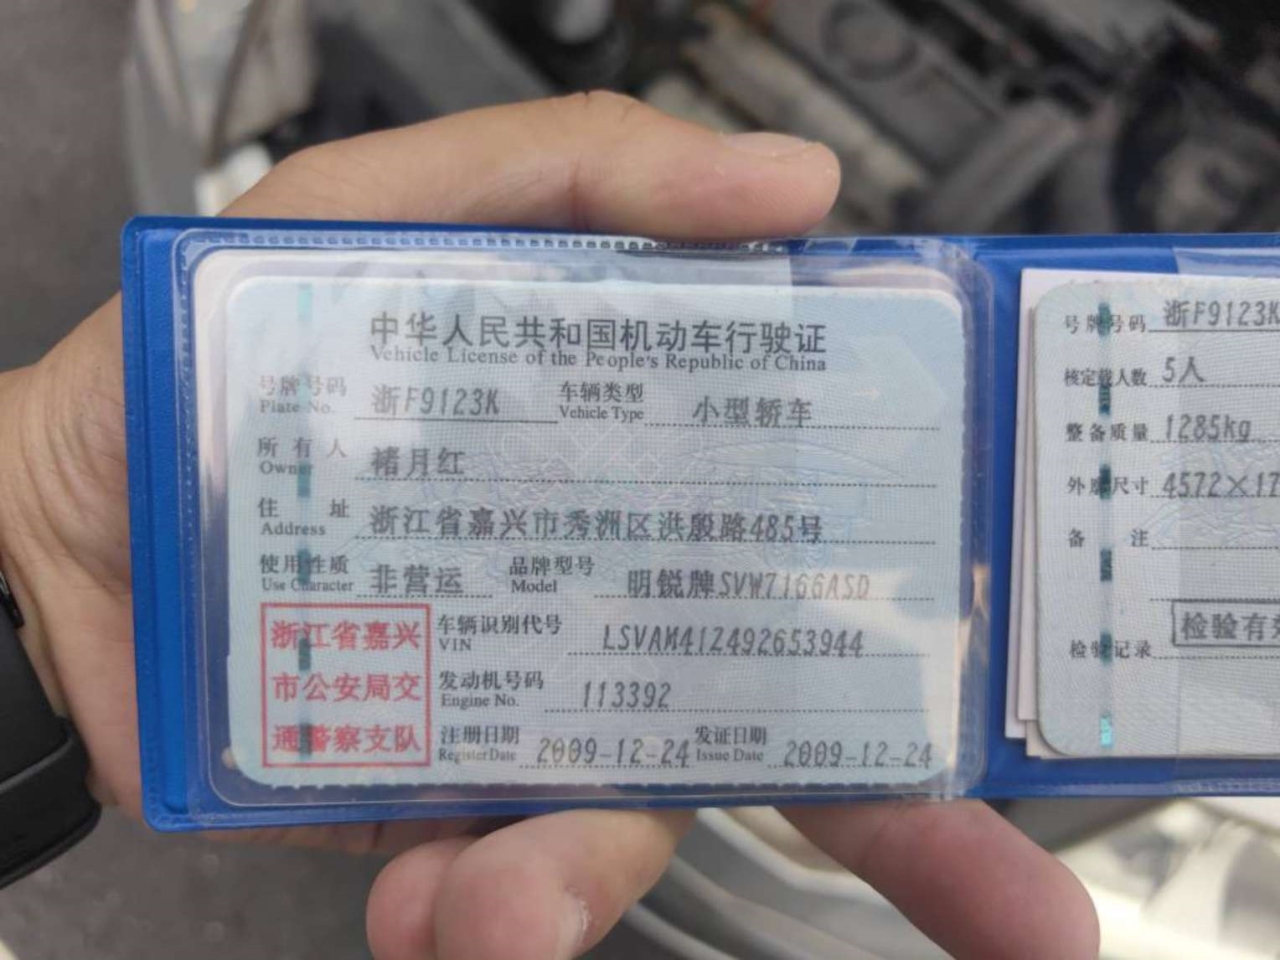 中华人民共和国机动车行驶证
Vehicle License of the People's Republic of China
号牌号码 浙F9123K 车辆类型 小型轿车
Plate No. Vehicle Type
所有人 褚月红
Owner
住址 浙江省嘉兴市秀洲区洪殷路485号
Address
使用性质 非营运 品牌型号 明锐牌SVW7166ASD
Use Character Model
浙江省嘉兴
市公安局交
通警察支队
车辆识别代号 LSVAM412492653944
VIN
发动机号码 113392
Engine No.
注册日期 2009-12-24 发证日期 2009-12-24
Register Date Issue Date
号牌号码 浙F9123K
核定载人数 5人
整备质量 1285kg
外廓尺寸 4572×17
备注
检验有
检验记录